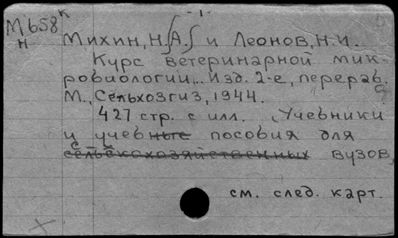 М658 к - 1 -
н Михин, Н.А. и Леонов, Н.И.
Курс ветеринарной мик-
робиологии... Изд. 2-е, перераб.
М., Сельхозгиз, 1944.
427 стр. с илл. (Учебники
и учебные пособия для
сельскохозяйственных вузов
см. след. карт.